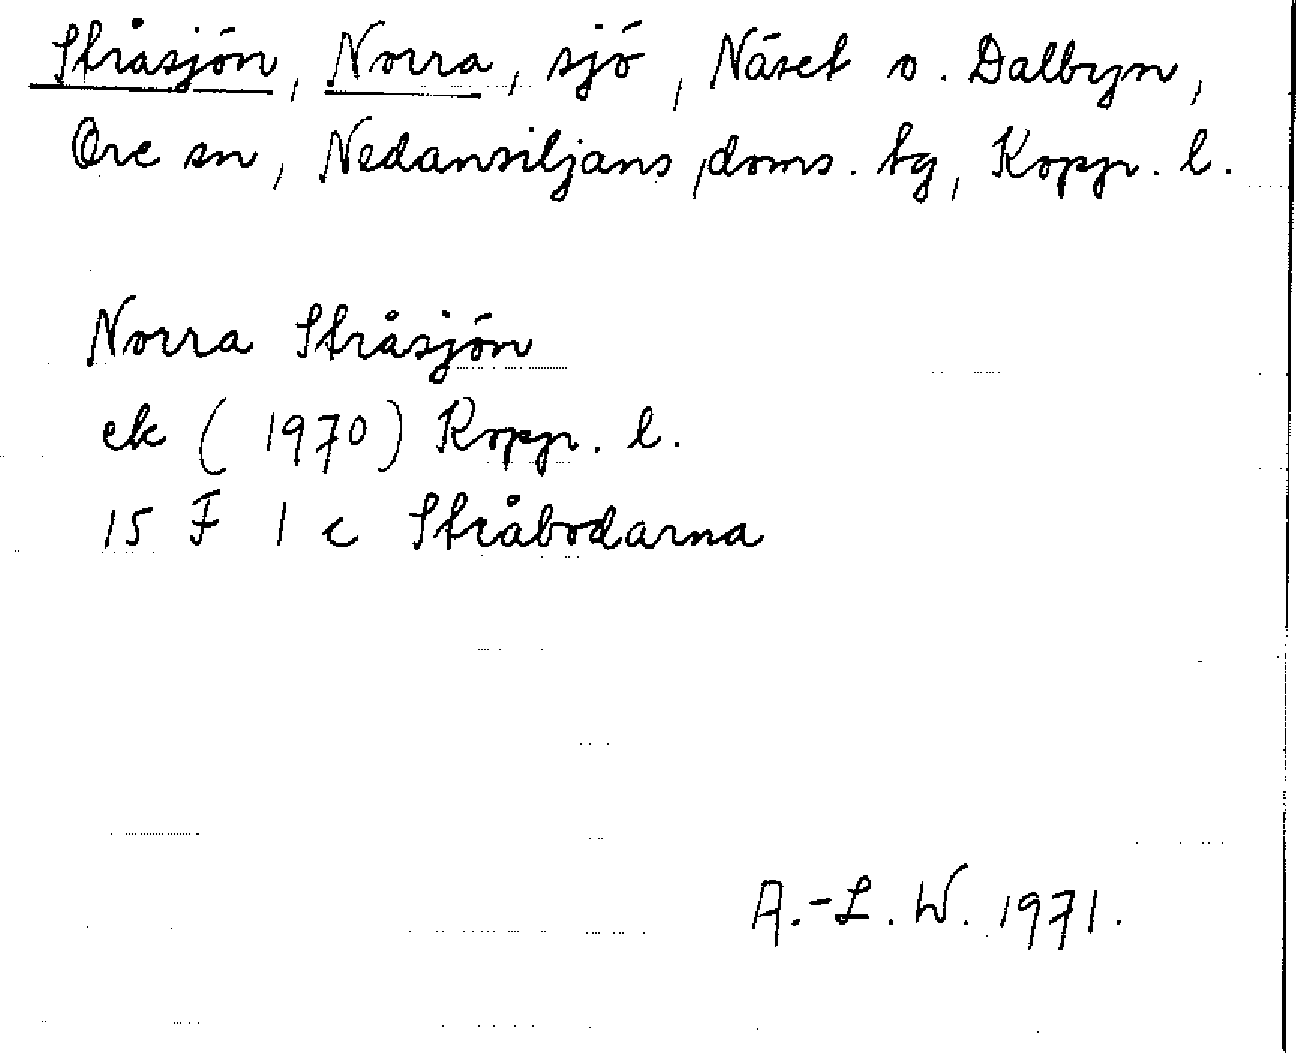 Stråsjön, Norra, sjö, Näset o. Dalbyn,
Ore sn, Nedansiljans doms. tg, Kopp. l.
Norra Stråsjön
ek (1970) Kopp. l.
15 F 1 c Stråbodarna
A.-L. W. 1971.